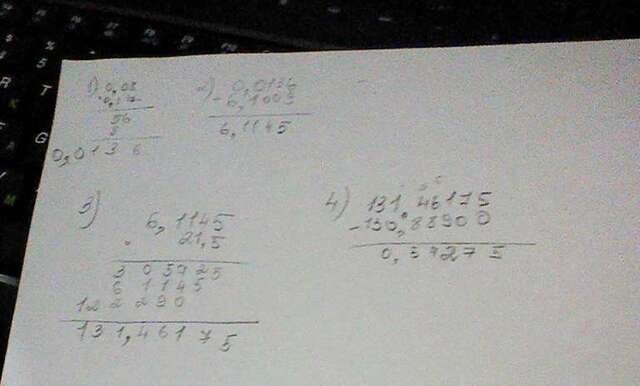 1) 0,08
0,17
56
8
0,0136
2) 0,0136
- 6,1009
6,1145
3) 6,1145
. 21,5
305725
61145
122290
131,46175
4) 131,46175
- 130,88900
0,57275